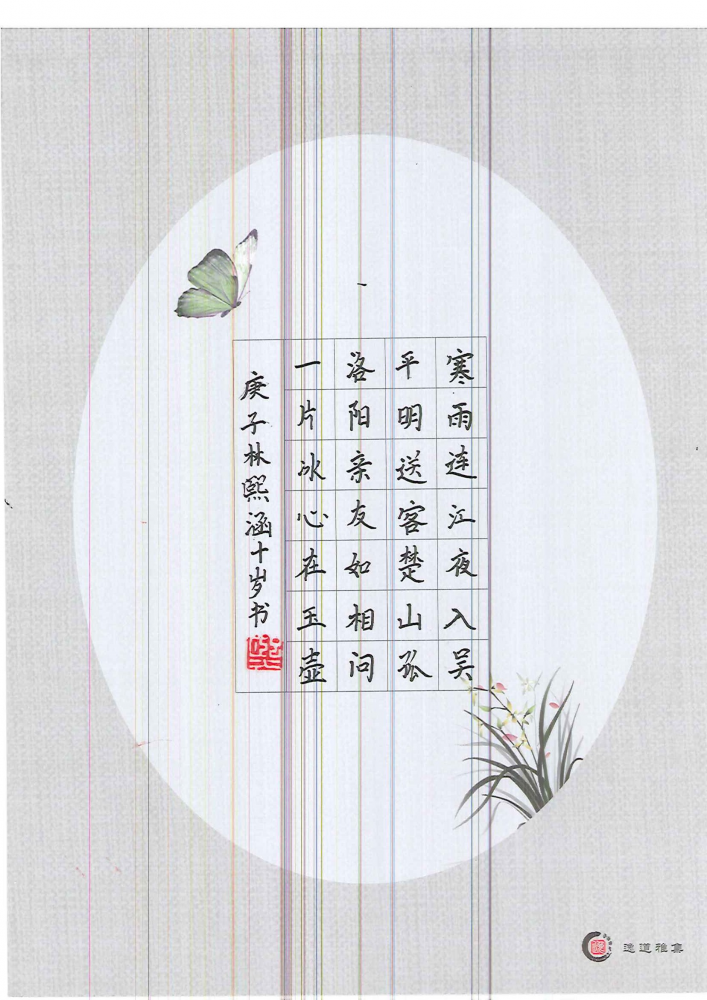 寒雨连江夜入吴
平明送客楚山孤
洛阳亲友如相问
一片冰心在玉壶
庚子林熙涵十岁书
逸道雅集